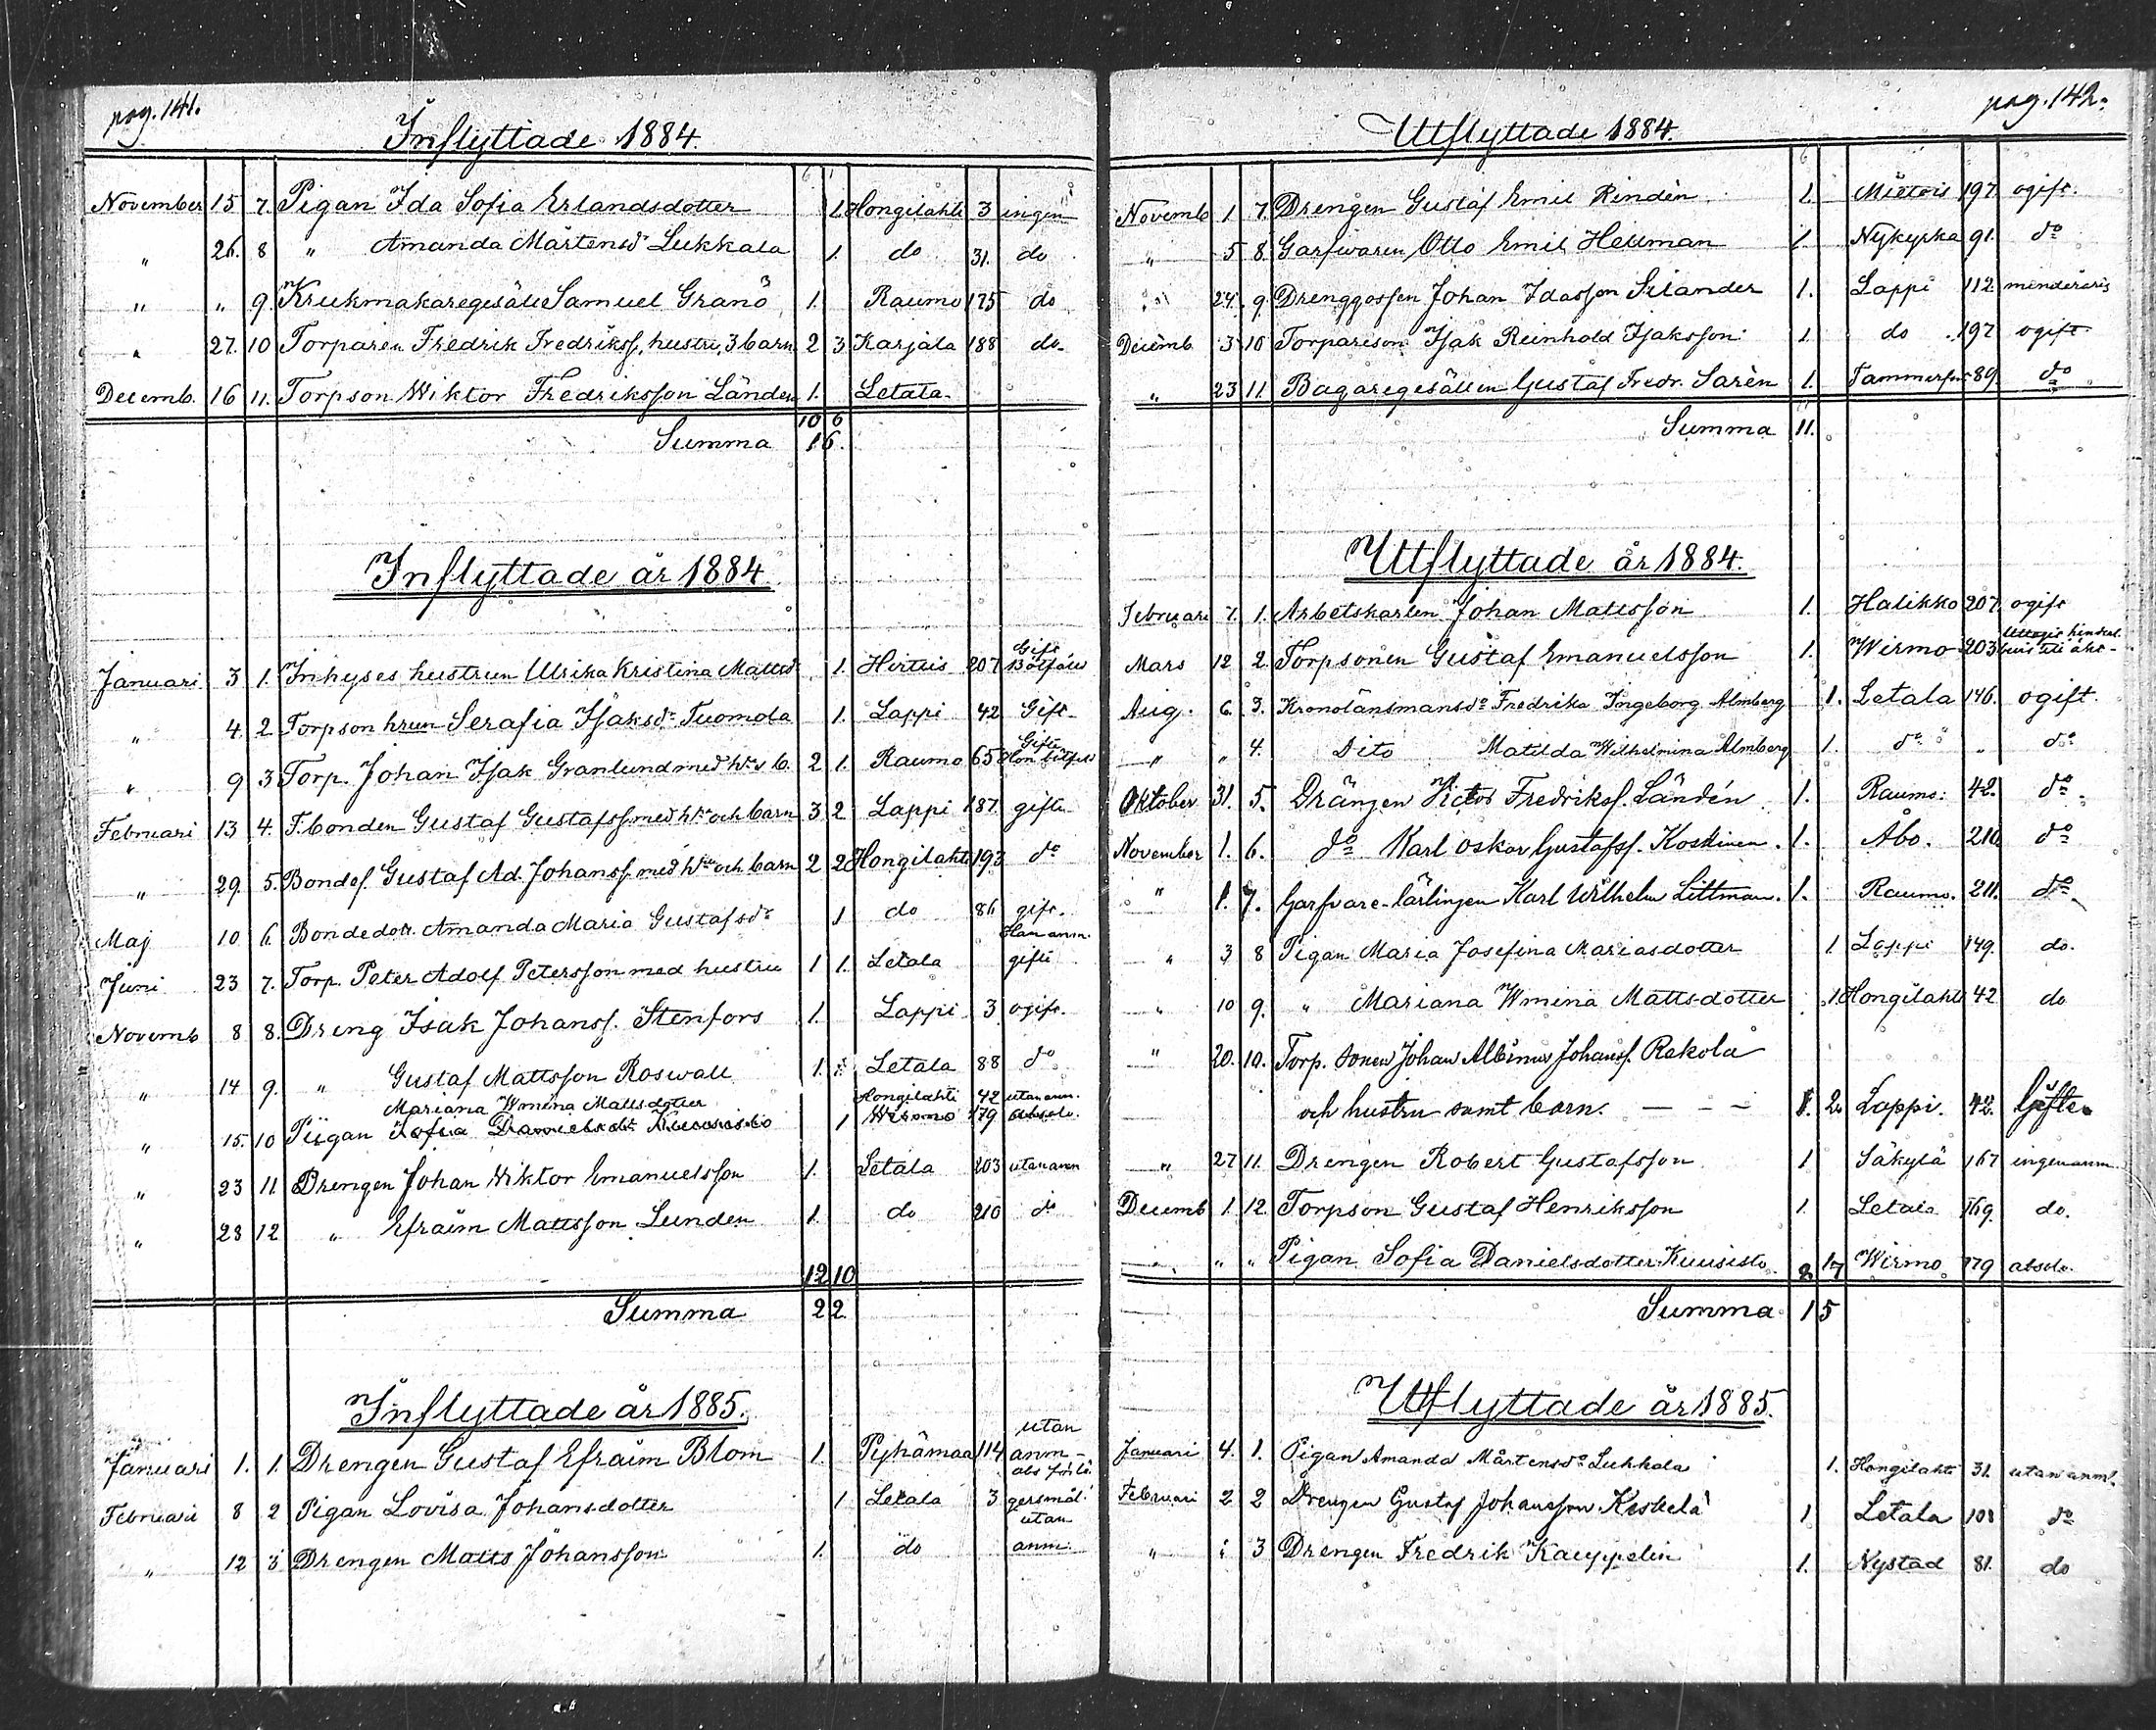 pag. 141.
Inflyttade 1884.
November 15 7. Pigan Ida Sofia Erlandsdotter 1. Hongilahti 3 ingen
" 26. 8 " Amanda Mårtensdr Lukkala 1. do 31. do
" " 9. Krukmakaregesäll Samuel Granö 1. Raumo 175 do
" 27. 10 Torparen Fredrik Fredrikss., hustru, 3 barn 2 3 Karjala 188 do
Decemb. 16 11. Torpson Wiktor Fredriksson Länden 1. Letala
10 6
Summa 16.
Inflyttade år 1884.
Januari 3 1. Inhyses hustrun Ulrika Kristina Mattsdr 1. Hirtuis 207 Gift
" 4. 2 Torpson hrun Serafia Isaksdr Tuomola 1. Lappi 42 Gift
" 9 3 Torp. Johan Isak Granlund med h. o b. 2 1. Raumo 65 Gifte
Februari 13 4. F. bonden Gustaf Gustafss. med h. och barn 3 2 Lappi 187. gifte
" 29. 5. Bondes. Gustaf Ad. Johanss. med h. och barn 2 2 Hongilahti 193 do
Maj 10 6. Bondedotr. Amanda Maria Gustafsdr 1 do 86 gift.
Juni 23 7. Torp. Peter Adolf Petersson med hustru 1 1. Letala gifte
Novemb 8 8. Dreng Isak Johanss. Stenfors 1. Lappi 3 ogift.
" 14 9. " Gustaf Mattsson Roswall 1. Letala 88 do
Mariana Wmina Mattsdotter Hongilahti 42 utan anm.
" 15. 10 Pigan Sofia Danielsdr Kuusisto 1 Wirmo 179 absolv.
" 23 11 Drengen Johan Wiktor Emanuelsson 1. Letala 203 utan anm
" 28 12 " Efraim Mattsson Lunden 1. do 210 do
12 10
Summa 22.
Inflyttade år 1885.
Januari 1. 1. Drengen Gustaf Efraim Blom 1. Pyhämaa 114 utan anm-
Februari 8 2 Pigan Lovisa Johansdotter 1 Letala 3
" 12 3 Drengen Matts Johansson 1. do utan anm.
pag. 142.
Utflyttade 1884.
Novemb 1 7. Drengen Gustaf Emil Rindèn 1. Mietois 197. ogift.
" 5 8 Garfwaren Otto Emil Hellman 1. Nykyrka 91. do
" 24. 9. Drenggossen Johan Idasson Silander 1. Lappi 112 minderårig
Decemb 3 10 Torparison Isak Reinhold Isaksson 1. do 197 ogift
" 23 11. Bagaregesällen Gustaf Fredr. Sarèn 1. Tammerfors 89. do
Summa 11.
Utflyttade år 1884.
Februari 7. 1. Arbetskarlen Johan Mattsson 1. Halikko 207. ogift
Mars 12 2. Torpsonen Gustaf Emanuelsson 1. Wirmo 203
Aug. 6. 3. Kronolänsmansdr Fredrika Ingeborg Almberg 1. Letala 146. ogift.
" " 4. Dito Matilda Wilhelmina Almberg 1. do " do
Oktober 31. 5. Drängen Victor Fredrikss. Ländén 1. Raumo. 42. do
November 1. 6. do Karl Oskar Gustafss. Koskinen. 1. Åbo. 210 do
" 1. 7. Garfvare-lärlingen Karl Wilhelm Littman. 1. Raumo. 211. do
" 3 8 Pigan Maria Josefina Mariasdotter 1 Lappi 149. do.
" 10 9. " Mariana Wmina Mattsdotter 1 Hongilahti 42 do
" 20. 10. Torp. sonen Johan Albinus Johanss. Rekola
och hustru samt barn. — — — 1. 2. Lappi. 42. Gifte.
" 27 11. Drengen Robert Gustafsson 1 Säkylä 167 ingen anm.
Decemb 1. 12. Torpson Gustaf Henriksson 1. Letala 169. do.
" " " Pigan Sofia Danielsdotter Kuusisto 8 7 Wirmo 179 absolv.
Summa 15
Utflyttade år 1885.
Januari 4. 1. Pigan Amanda Mårtensdr Lukkala 1. Hongilahti 31. utan anm.
Februari 2 2 Drengen Gustaf Johansson Keskelä 1 Letala 108 do
" 3 Drengen Fredrik Kauppelin 1. Nystad 81. do